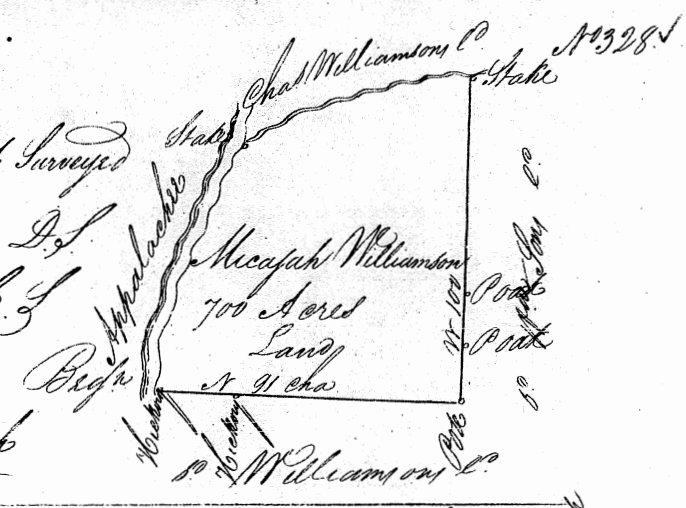 No 328
Chas Williamsons
Stake
Stake
Surveyed
D. S
Appalachee
Micajah Williamson
700 Acres
Land
W 100
Poak
Poak
Begn
N 91 cha
Hickory
Hickory
Williamsons